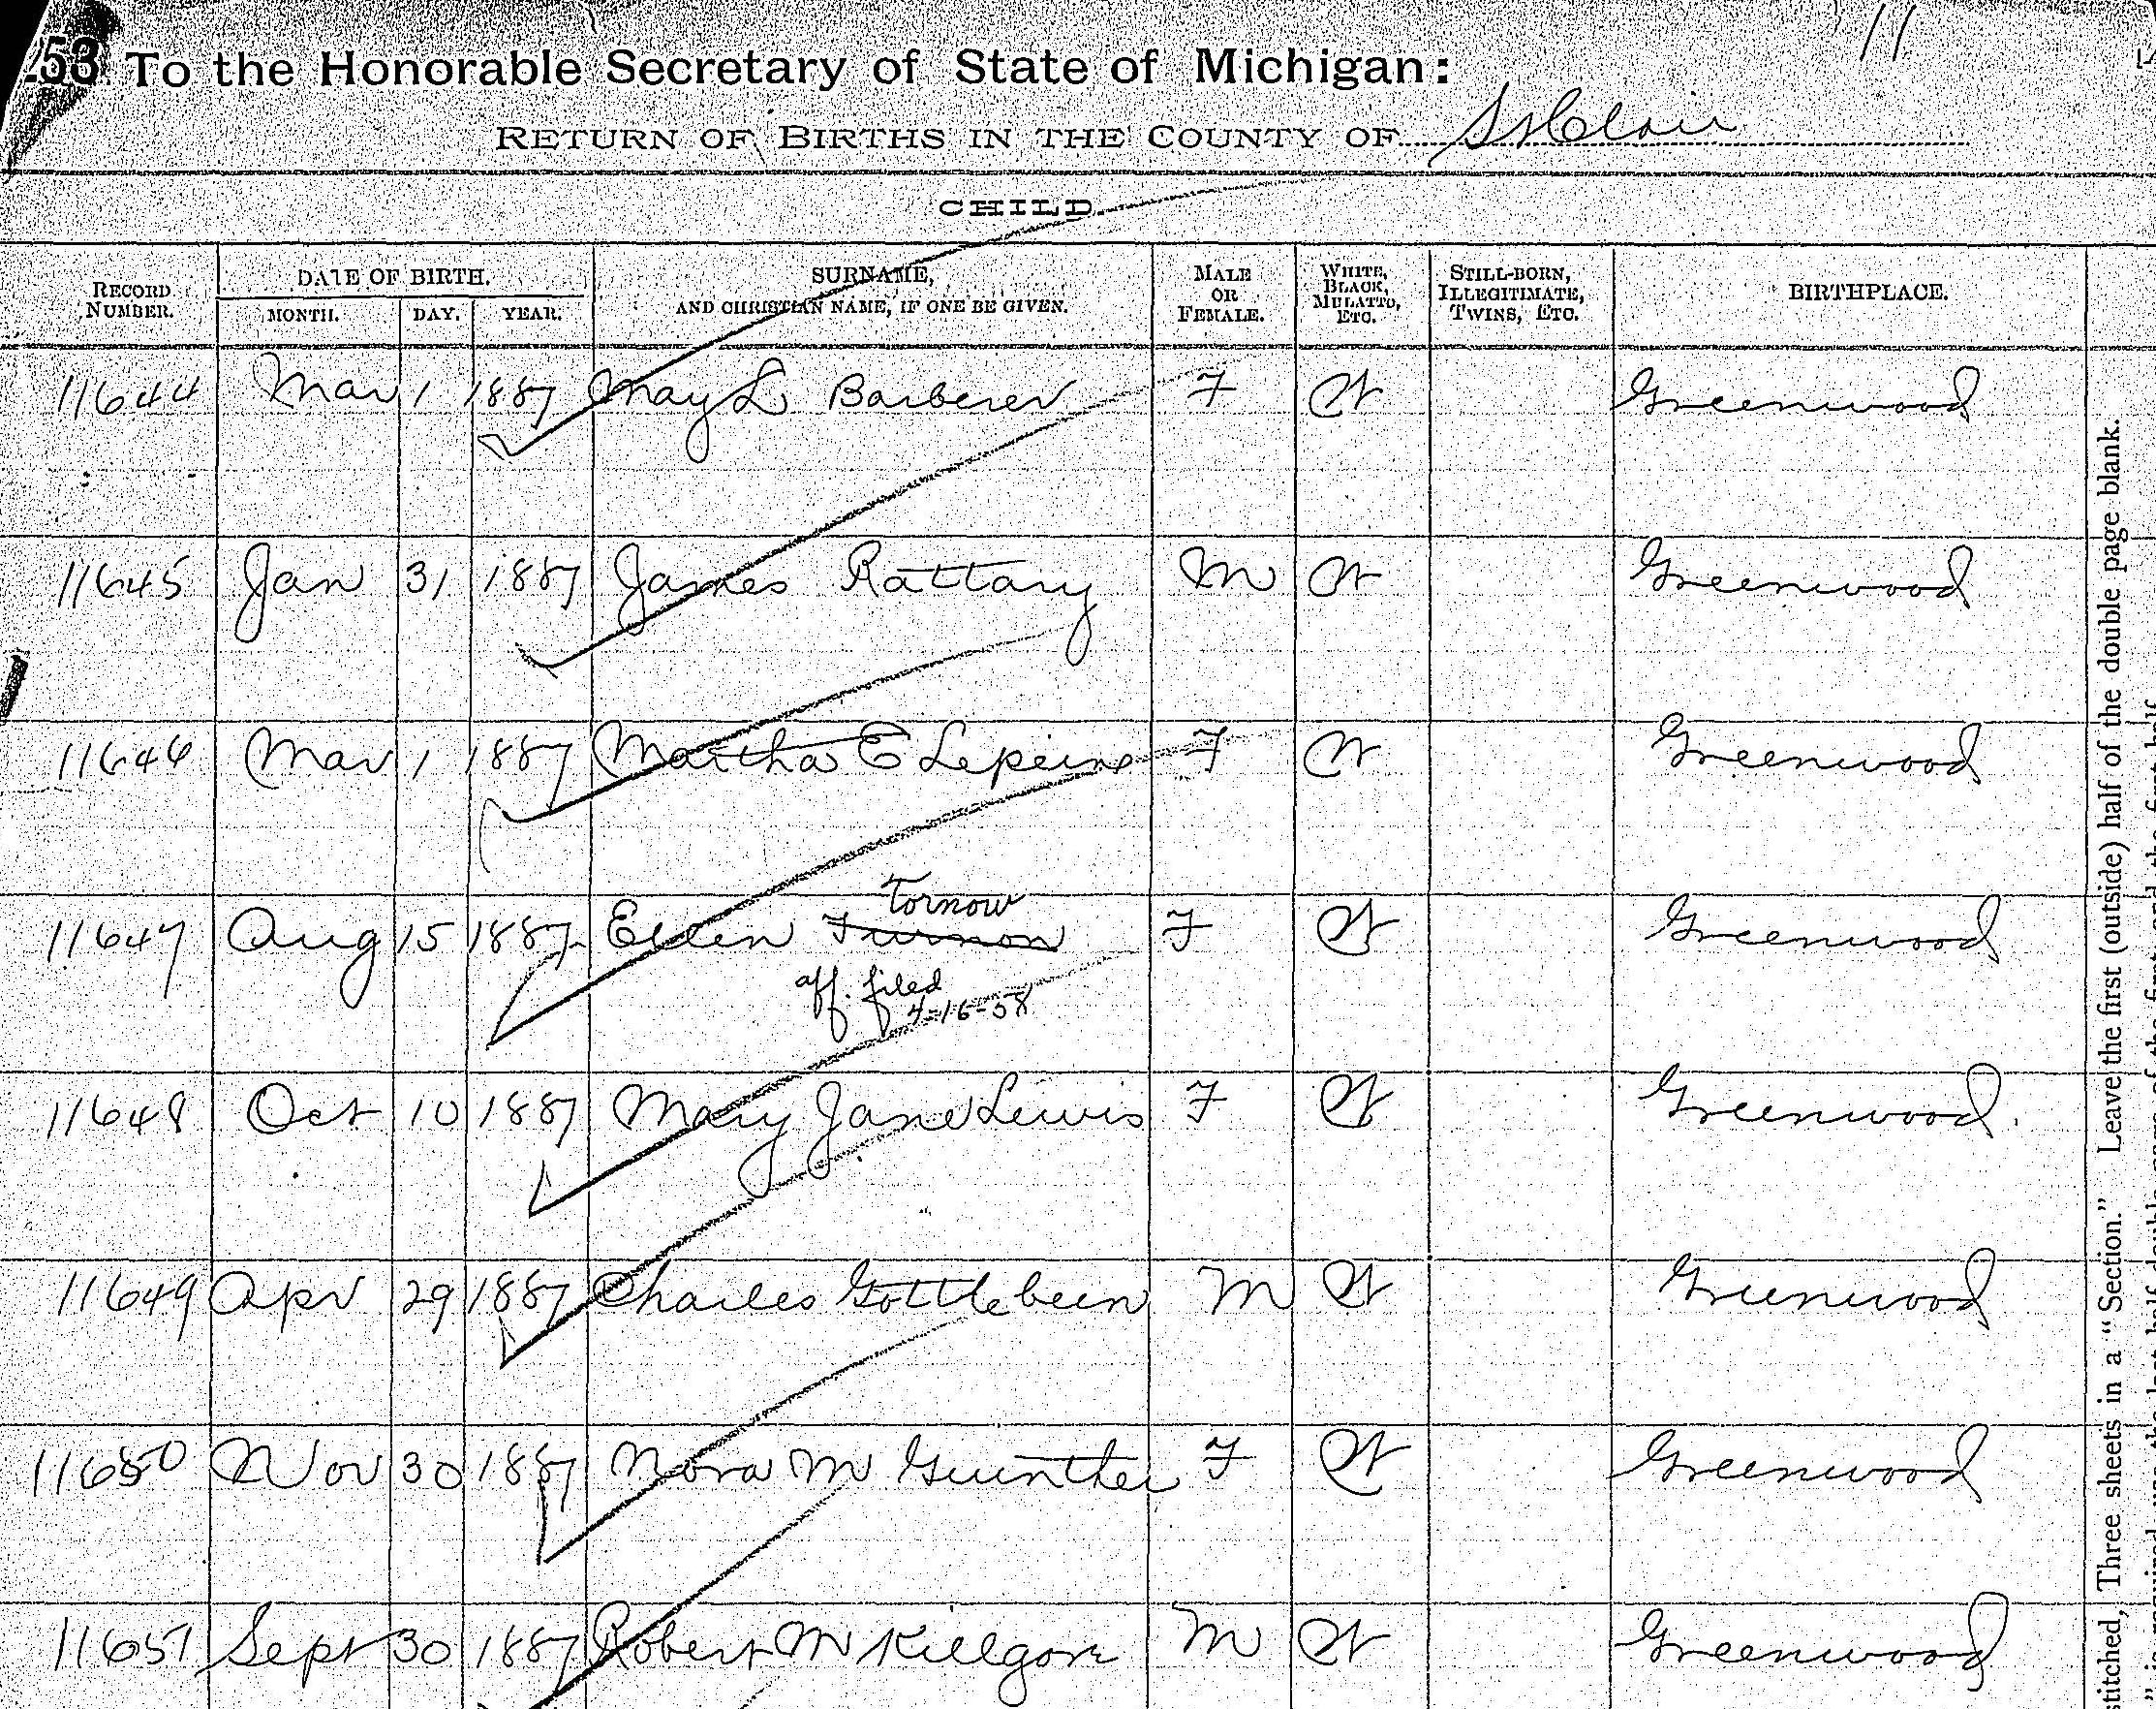 253 To the Honorable Secretary of State of Michigan:
11
RETURN OF BIRTHS IN THE COUNTY OF St Clair
CHILD.
RECORD NUMBER. DATE OF BIRTH. MONTH. DAY. YEAR. SURNAME, AND CHRISTIAN NAME, IF ONE BE GIVEN. MALE OR FEMALE. WHITE, BLACK, MULATTO, ETC. STILL-BORN, ILLEGITIMATE, TWINS, ETC. BIRTHPLACE.
11644 Mar 1 1887 May L Barberer F W Greenwood
11645 Jan 31 1887 James Rattary M W Greenwood
11646 Mar 1 1887 Martha E Lepeine F W Greenwood
Tornow
11647 Aug 15 1887 Ellen Furnon F W Greenwood
aff. filed
4-16-58
11648 Oct 10 1887 Mary Jane Lewis F W Greenwood.
11649 Apr 29 1887 Charles Gottlebein M W Greenwood
11650 Nov 30 1887 Nora M Guinther F W Greenwood
11651 Sept 30 1887 Robert M Killgore M W Greenwood
stitched, Three sheets in a "Section." Leave the first (outside) half of the double page blank.